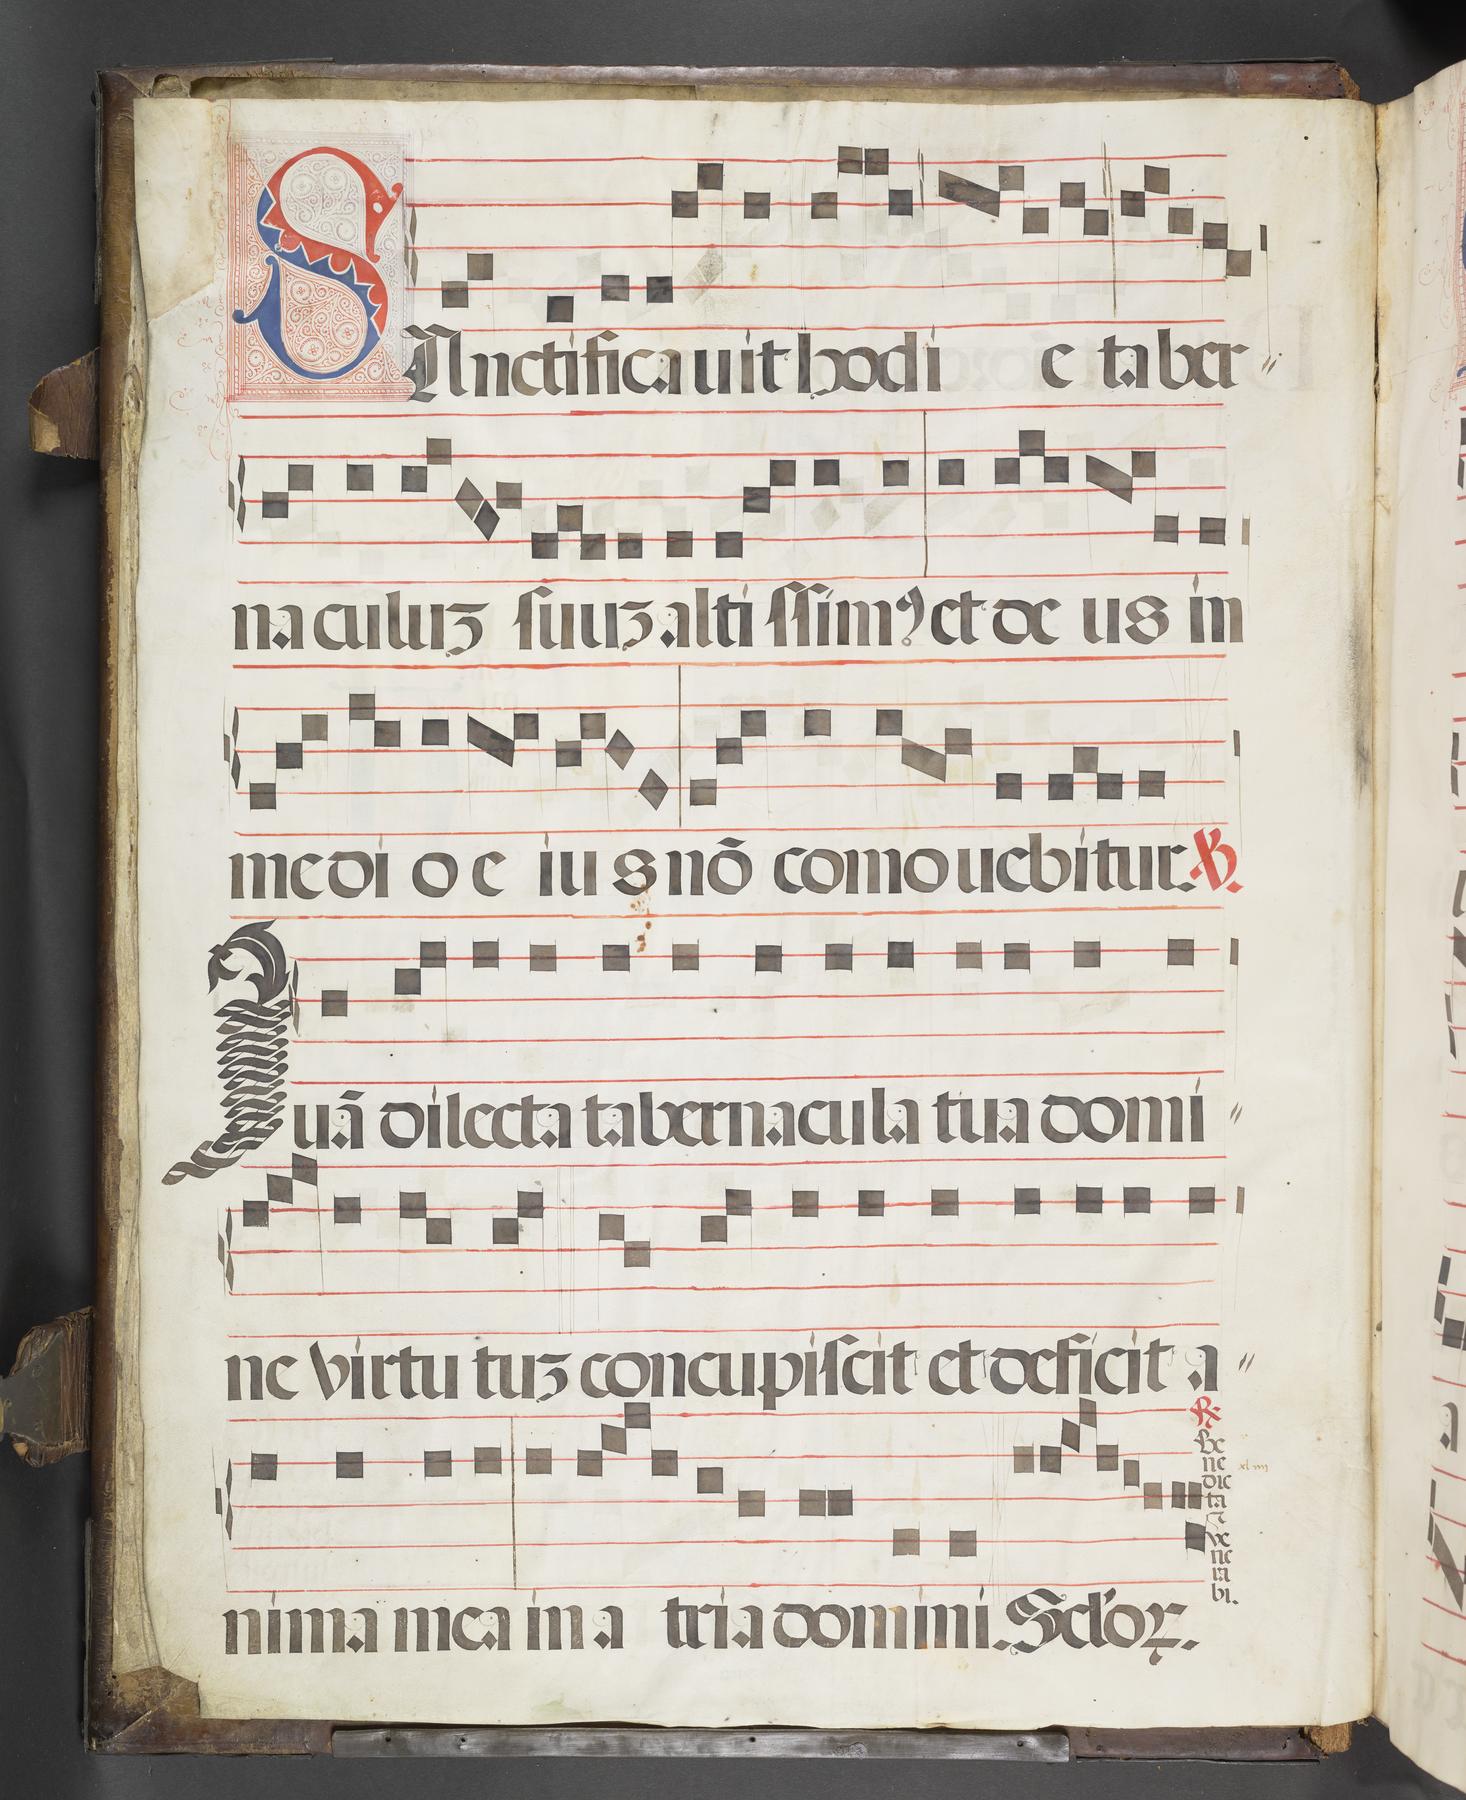 SAnctificauit hodi e taber
naculuꝫ suuꝫ altissimꝰ et de us in
medi o e ius nō comouebitur. ℣.
Quā dilecta tabernacula tua domi
ne virtu tuꝫ concupiscit et deficit a
nima mea in a tria domini. Sclo'ꝝ.
℟.
Be
ne
dic
ta
⁊
ve
ne
ra
bi.